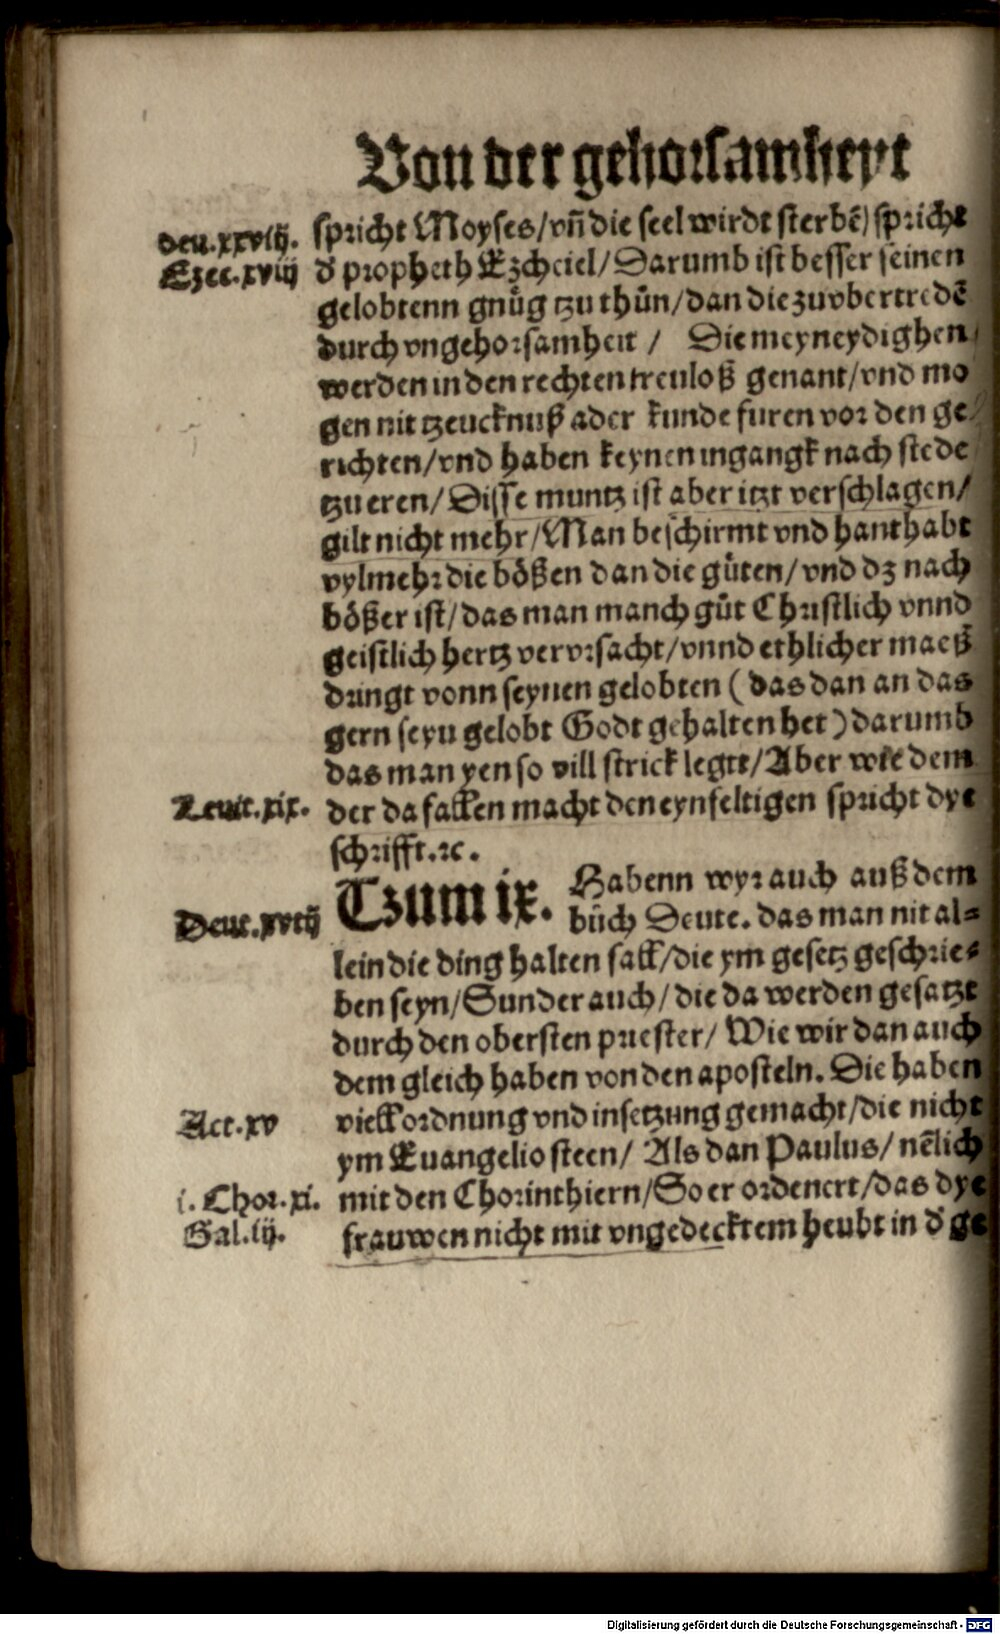 Von der gehorsamheyt
deu.xxviij.
spricht Moyses/vñ die seel wirdt sterbẽ/spricht
Ezec.xviij
d' propheth Ezcheiel/Darumb ist besser seinen
gelobtenn gnůg tzu thůn/dan die zuvbertredẽ
durch vngehorsamheit / Die meyneydighen
werden in den rechten treuloß genant/vnd mo
gen nit tzeucknuß ader kunde furen vor den ge
richten/vnd haben keynen ingangk nach stede
tzu eren/Disse muntz ist aber itzt verschlagen/
gilt nicht mehr/Man beschirmt vnd hanthabt
vylmehr die bößen dan die gůten/vnd dz nach
bößer ist/das man manch gůt Christlich vnnd
geistlich hertz vervrsacht/vnnd ethlicher maeß
dringt vonn seynen gelobten (das dan an das
gern seyn gelobt Godt gehalten het) darumb
das man yen so vill strick legtt/Aber wie dem
Leuit.xix.
der da fallen macht den eynfeltigen spricht dye
schrifft.ꝛc.
Tzum ix. Habenn wyr auch auß dem
Deut.xvij
bůch Deute. das man nit al=
lein die ding halten sall/die ym gesetz geschrie=
ben seyn/Sunder auch/die da werden gesatzt
durch den obersten priester/ Wie wir dan auch
dem gleich haben von den aposteln. Die haben
Act.xv
viell ordnung vnd insetzung gemacht/die nicht
ym Euangelio steen/ Als dan Paulus/ nẽlich
i. Chor.xi.
mit den Chorinthiern/So er ordenert/das dye
Gal.iij.
frauwen nicht mit vngedecktem heubt in d' ge
Digitalisierung gefördert durch die Deutsche Forschungsgemeinschaft - DFG